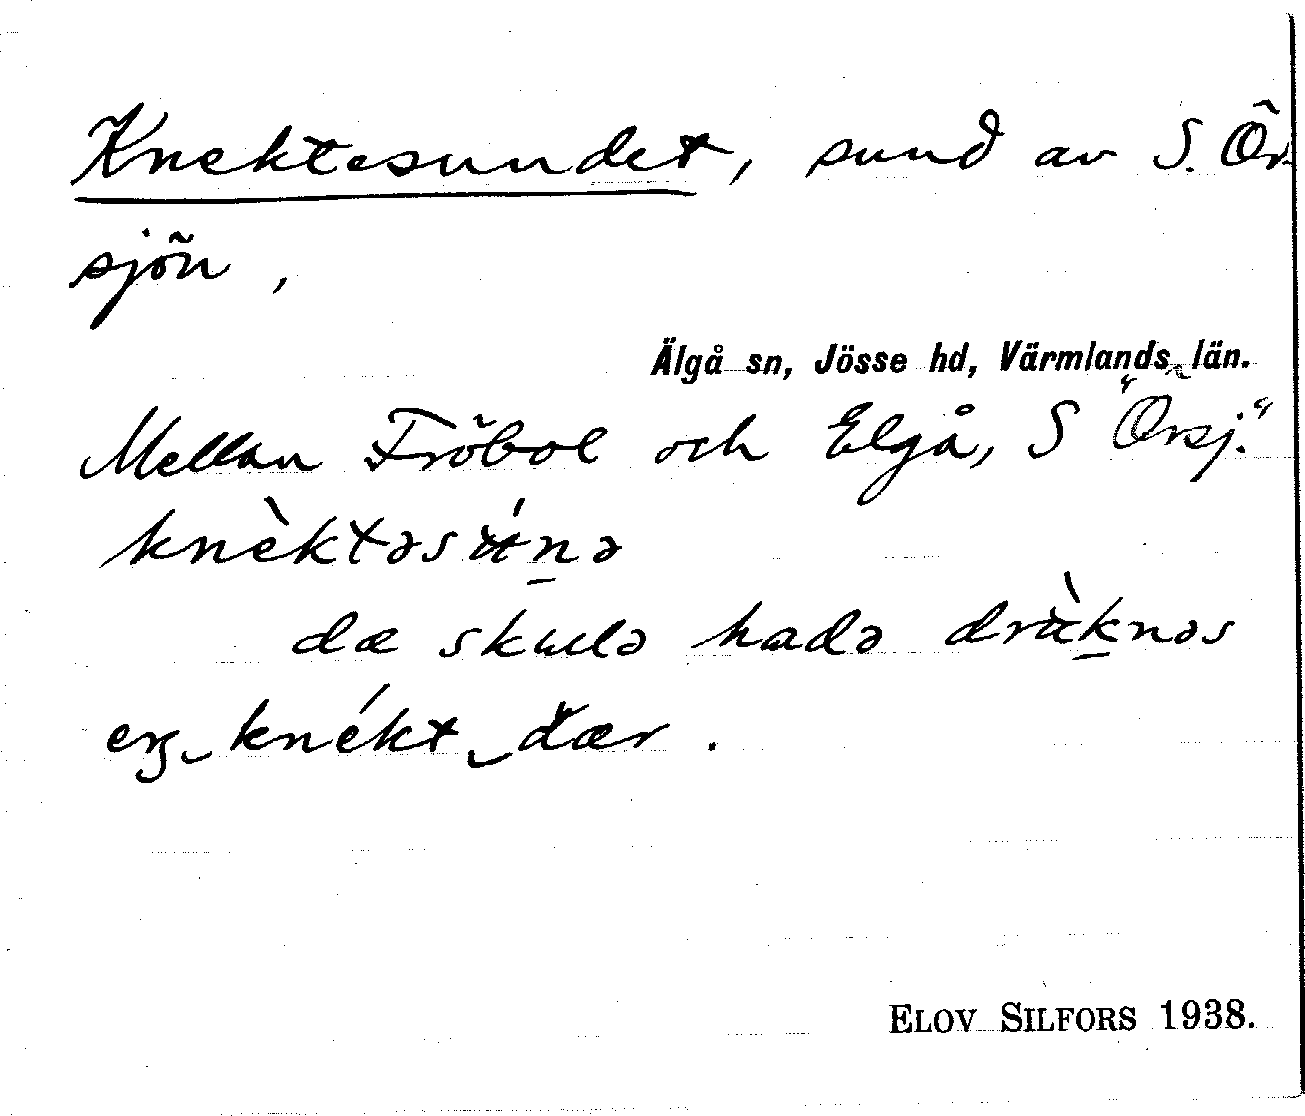 Knektesundet, sund av S. Ör
sjön,
Älgå sn, Jösse hd, Värmlands län.
Mellan Fröbol och Elgå, S "Örsj."
knèktəsʉ́n̲ə
dæ skulə hadə drʉ̀k̲nəs
eŋ‿knékt‿dær.
ELOV SILFORS 1938.